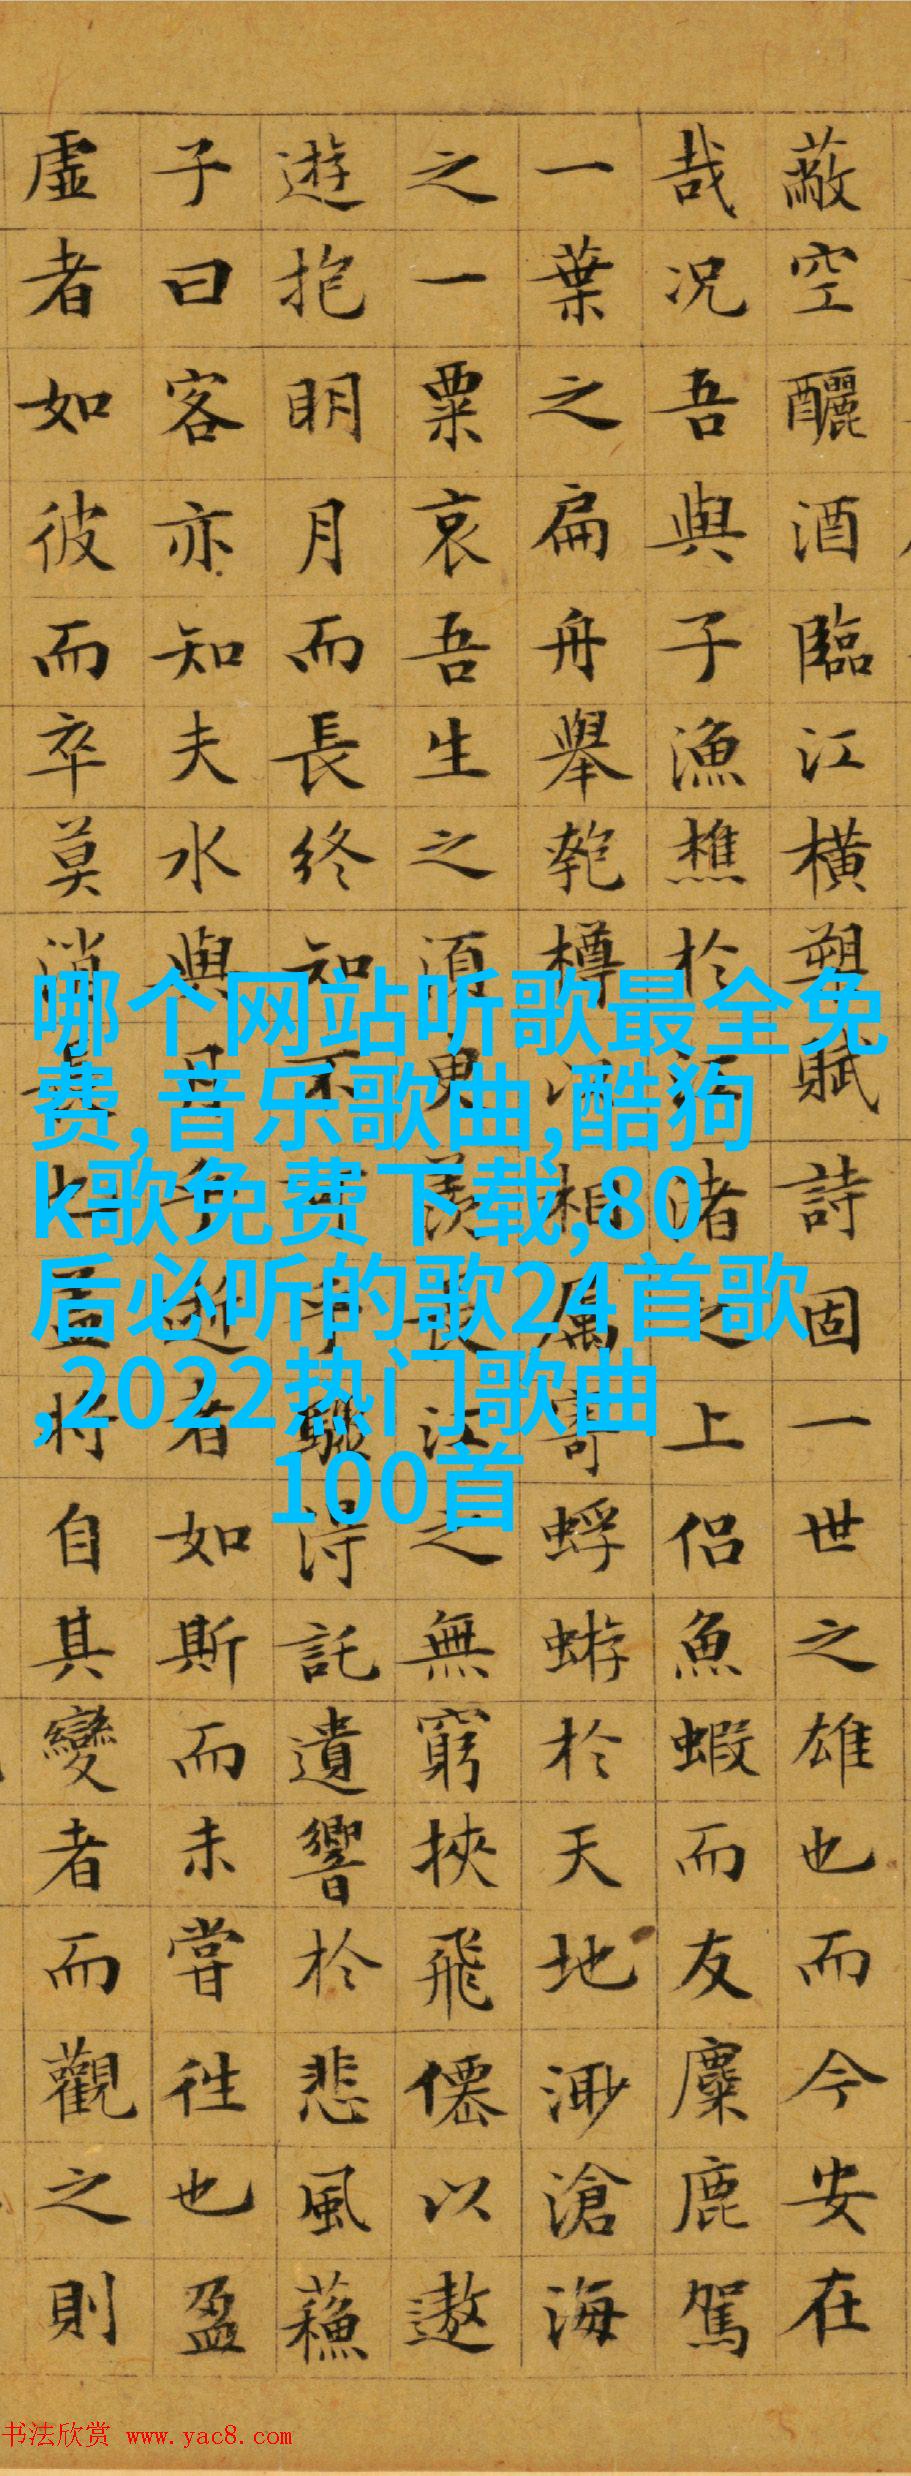 蔽空釃酒臨江橫槊賦詩固一世之雄也而今安在
哉况吾與子漁樵於江渚之上侣魚蝦而友麋鹿駕
一葉之扁舟舉匏樽以相属寄蜉蝣於天地渺滄海
之一粟哀吾生之須臾羨長江之無窮挾飛僊以遨
遊抱明月而長終知不可乎驟得託遺響於悲風蘓
子曰客亦知夫水與月乎逝者如斯而未嘗往也盈
虛者如彼而卒莫消長也盖将自其變者而觀之則
哪个网站听歌最全免
费,音乐歌曲,酷狗
k歌免费下载,80
后必听的歌24首歌
,2022热门歌曲
100首
书法欣赏 www.yac8.com